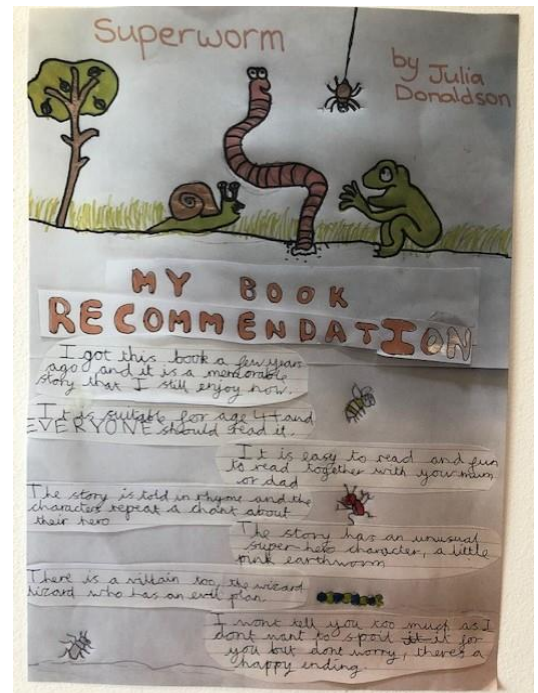 Superworm
by Julia
Donaldson
MY BOOK
RECOMMENDATION
I got this book a few years
ago and it is a memorable
story that I still enjoy now.
It is suitable for age 4+ and
EVERYONE should read it.
It is easy to read and fun
to read together with your mum
or dad
The story is told in rhyme and the
characters repeat a chant about
their hero
The story has an unusual
super-hero character, a little
pink earthworm
There is a villain too, the wizard
lizard who has an evil plan.
I wont tell you too much as I
dont want to spoil it for
you but dont worry, theres a
happy ending.